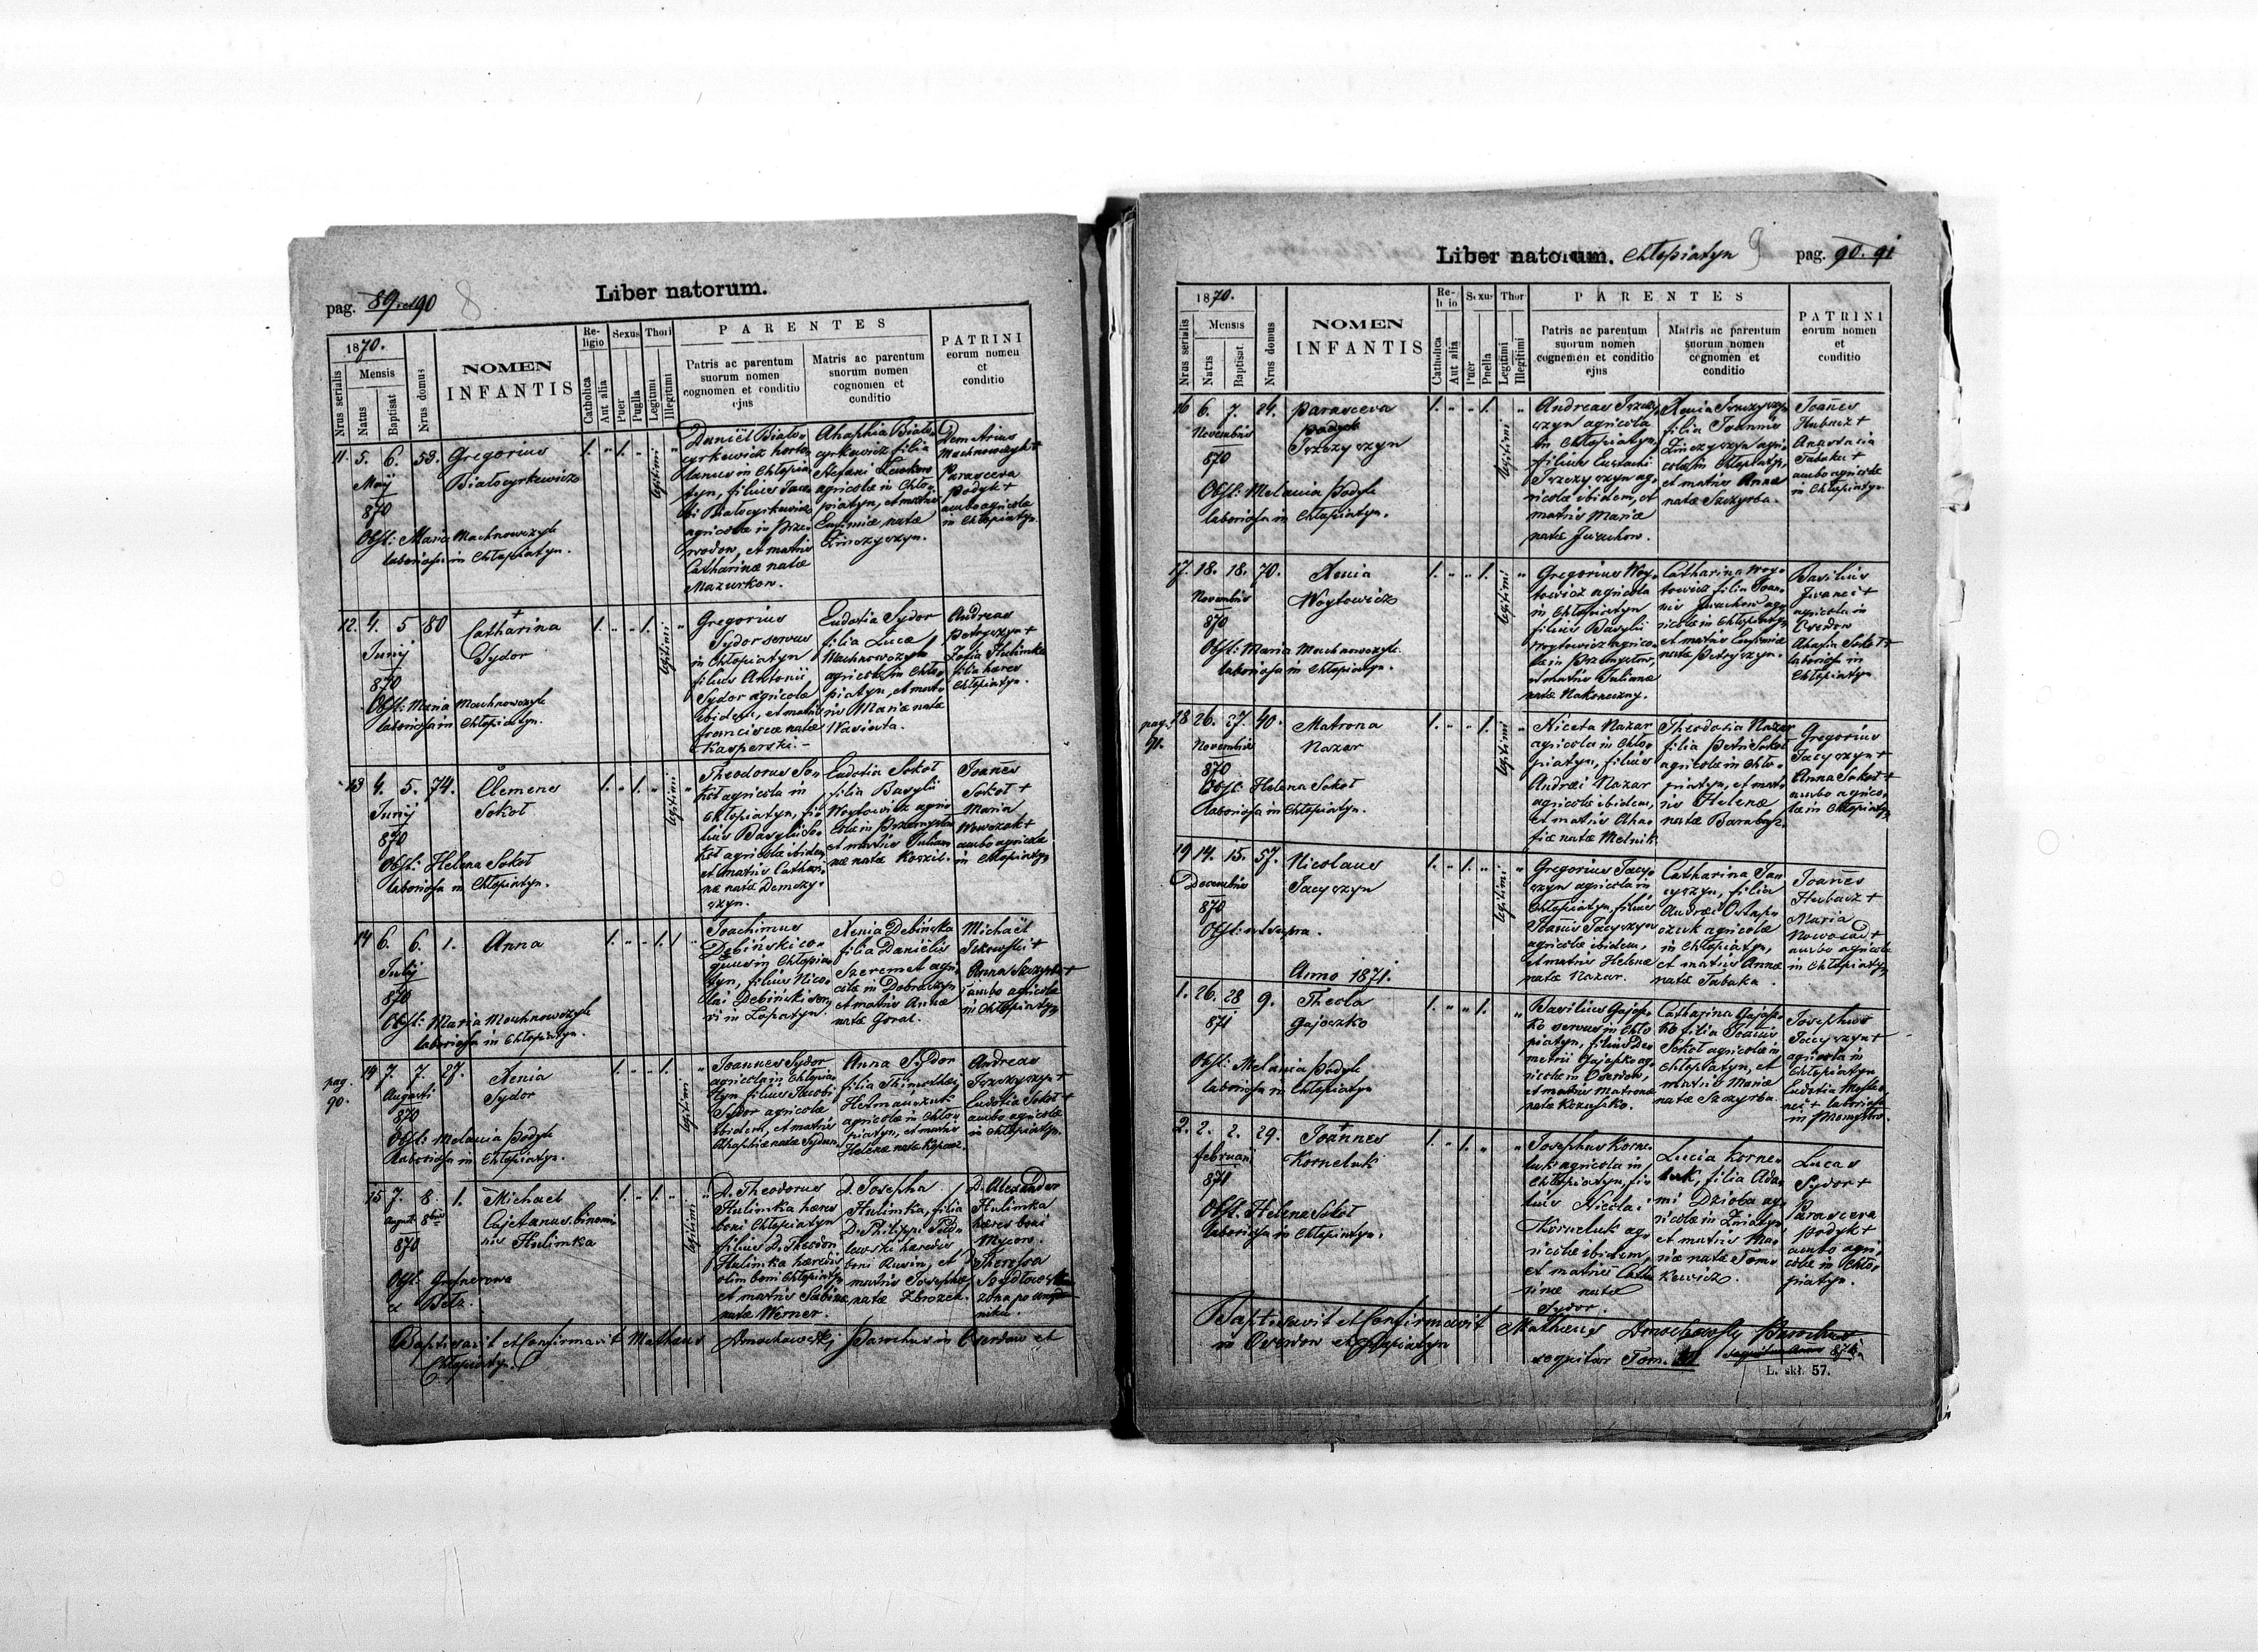 pag. 89 et 90 8
Liber natorum.
1870.
Nrus serialis
Mensis
Natus
Baptisat
Nrus domus
NOMEN
INFANTIS
Re-
ligio
Catholica
Aut alia
Sexus
Puer
Puella
Thori
Legitimi
Illegitimi
PARENTES
Patris ac parentum
suorum nomen
cognomen et conditio
ejus
Matris ac parentum
suorum nomen
cognomen et
conditio
PATRINI
eorum nomen
et
conditio
11. 5. 6. 53. Gregorius
Białocyrkewicz
Maij
870
Obst: Maria Machnowczyk
laboriosa in Chłopiatyn.
1. „ 1. „ legitimi „
Daniël Biało-
cyrkewicz horto-
lanus in Chłopia-
tyn, filius Jaco-
bi Białocyrkewicz
agricolæ in Prze-
wodow, et matris
Catharinæ natæ
Mazurkow.
Ahaphia Biało-
cyrkewicz filia
Stefani
agricolæ in Chło-
piatyn, et matris
Eufimiæ natæ
Zinczyszyn.
Machnowczyk +
Parasceva
Podyk +
ambo agricolæ
in Chłopiatyn.
12. 4. 5 80 Catharina
Sydor
Junij
870
Obst: Maria Machnowczyk
laboriosa in Chłopiatyn.
1. „ „ 1. legitimi „
Gregorius
Sydor servus
in Chłopiatyn
filius Antonii
Sydor agricolæ
ibidem, et matris
Franciscæ natæ
Kasperski. –
Eudotia Sydor
filia Lucæ
Machnowczyk
agricolæ in Chło-
piatyn, et mat-
ris Mariæ natæ
Wasiuta.
Andreas
Petryszyn +
Zofia Hulimka
filia hæres
Chłopiatyn.
13 4. 5. 74. Clemens
Sokoł
Junij
870
Obst: Helena Sokoł
laboriosa in Chłopiatyn.
1. „ 1. „ legitimi „
Theodorus So-
koł agricola in
Chłopiatyn, fi-
lius Basylii So-
koł agricolæ ibidem
et matris Cathari-
næ natæ Demczy-
szyn.
Eudotia Sokoł
filia Basylii
Woytowicz agri-
colæ in Przemysłow
et matris Julian-
næ natæ Koszil.
Joanes
Sokoł +
Maria
Nowosad +
ambo agricolæ
in Chłopiatyn
14 6. 6. 1. Anna
Julij
870
Obst: Maria Machnowczyk
laboriosa in Chłopiatyn.
1. „ „ 1. 1 „
Joachimus
Dębiński co-
quus in Chłopia-
tyn, filius Nico-
lai Dębiński ser-
vi in Łopatyn.
Xenia Dębińska
filia Daniëlis
Szeremet agri-
colæ in Dobraczyn
et matris Annæ
natæ Goral.
Michaël
Anna Szczyrba +
ambo agricolæ
in Chłopiatyn
pag.
90.
14 7. 7. 27. Xenia
Sydor
Augusti
870
Obst: Melania Podyk
laboriosa in Chłopiatyn.
1. „ „ 1. legitimi „
Joannes Sydor
agricola in Chłopia-
tyn filius Jacobi
Sydor agricolæ
ibidem, et matris
Ahaphiæ natæ Sydor.
Anna Sydor
filia Thimothei
Hermanczuk
agricolæ in Chło-
piatyn, et matris
Helenæ natæ
Andreas
Trzczyszyn +
Eudotia Sokoł +
ambo agricolæ
in Chłopiatyn.
15 7. 8. 1. Michael
Cajetanus binomi-
nis Hulimka
August 8bris
870
Obst. Grefnerowa
e Bełz.
1. „ 1. „ legitimi „
D. Theodorus
Hulimka hæres
boni Chłopiatyn
filius D. Theodori
Hulimka hæredis
olim boni Chłopiatyn
et matris Sabinæ
natæ Werner.
D. Josepha
Hulimka, filia
D. Philippi Podo-
lewski hæredis
boni Rusin, et
matris Josephæ
natæ Zbrozek.
D. Alexander
Hulimka
hæres boni
Mycow.
D. Theressa
żona po urzęd-
nika.
Baptisavit et Confirmavit Matheus Dmochowski Parochus in Oserdow et
Chłopiatyn.
Liber natorum. Chłopiatyn 9 pag. 90. 91
1870.
Nrus serialis
Mensis
Natus
Baptisat.
Nrus domus
NOMEN
INFANTIS
Catholica
Aut alia
Sexus
Puer
Puella
Thor
Legitimi
Illegitimi
PARENTES
Patris ac parentum
suorum nomen
cognomen et conditio
ejus
Matris ac parentum
suorum nomen
cognomen et
conditio
PATRINI
eorum nomen
et
conditio
16 6. 7. 24. Parasceva
Podyk
Trzczyszyn
Novembris
870
Obst: Melania Podyk
laboriosa in Chłopiatyn.
1. „ „ 1. legitimi „
Andreas Trzczy-
szyn agricola
in Chłopiatyn,
filius Eustachi
Trzczyszyn ag-
ricolæ ibidem, et
matris Mariæ
natæ Jwachow.
Xenia Trzczyszyn
filia Joannis
Zinczyszyn agri-
colæ in Chłopiatyn,
et matris Annæ
natæ Szczyrba.
Joañes
Hubacz +
Anastasia
Tabaka +
ambo agricolæ
in Chłopiatyn
17. 18. 18. 70. Xenia
Woytowicz
Novembris
870
Obst: Maria Machnowczyk
laboriosa in Chłopiatyn.
1. „ „ 1. legitimi „
Gregorius Woy-
towicz agricola
in Chłopiatyn
filius Basylii
Woytowicz agrico-
læ in Przemysłow,
et matris Julianæ
natæ Nakoneczny.
Catharina Woy-
towicz filia Joan-
nis Jwachow ag-
ricolæ in Chłopiatyn
et matris Eufimiæ
natæ Petryszyn.
Basilius
Jwanci +
agricola in
Oserdow
Ahafia Sokoł +
laboriosa in
Chłopiatyn
pag.
91.
18 26. 27. 40. Matrona
Nazar
Novembris
870
Obst: Helena Sokoł
laboriosa in Chłopiatyn.
1. „ „ 1. legitimi „
Niceta Nazar
agricola in Chło-
piatyn, filius
Andreæ Nazar
agricolæ ibidem,
et matris Aha-
fiæ natæ Melnik.
Theodosia Nazar
filia Petri Sokoł
agricolæ in Chło-
piatyn, et mat-
ris Helenæ
natæ Barabasz.
Gregorius
Jacyszyn +
Anna Sokoł +
ambo agrico-
læ in Chłopiatyn
19 14. 15. 57. Nicolaus
Jacyszyn
Decembris
870
Obst: ut supra.
1. „ 1. „ legitimi „
Gregorius Jacy-
szyn agricola in
Chłopiatyn, filius
Joanis Jacyszyn
agricolæ ibidem,
et matris Helenæ
natæ Nazar.
Catharina Ja-
cyszyn, filia
Andreæ Ostap-
czuk agricolæ
in Chłopiatyn,
et matris Annæ
natæ Tabaka.
Joañes
Hubacz +
Maria
Nowosad +
ambo agricolæ
in Chłopiatyn
Anno 1871.
1. 26. 28 9. Thecla
Gajoszko
871
Obst: Melania Podyk
laboriosa in Chłopiatyn
1. „ „ 1. „
Wasilius Gajosz-
ko servus in Chło-
piatyn, filius De-
metrii Gajoszko ag-
ricolæ in Oserdow,
et matris Matronæ
natæ
Catharina Gajosz-
ko filia Joanis
Sokoł agricolæ in
Chłopiatyn, et
matris Mariæ
natæ Szczyrba.
Josephus
Jacyszyn +
agricola in
Chłopiatyn
Eudotia
laboriosa
2. 2. 2. 29. Joannes
Korneluk
februari
871
Obst. Helena Sokoł
laboriosa in Chłopiatyn.
1. „ 1. „ „
Josephus Korne-
luk agricola in
Chłopiatyn, fi-
lius Nicolai
Korneluk ag-
ricolæ ibidem
et matris Catha-
rinæ natæ
Sydor.
Lucia Korne-
luk, filia Ada-
mi Dzioba ag-
ricolæ in Zniatyn,
et matris Ma-
riæ natæ Tom-
kewicz.
Lucas
Sydor +
Parasceva
Podyk +
ambo agri-
colæ in Chło-
piatyn.
Baptisavit et Confirmavit Matheus Dmochowski Parochus
in Oserdow et Chłopiatyn
sequitur Tom.
L. skł. 57.